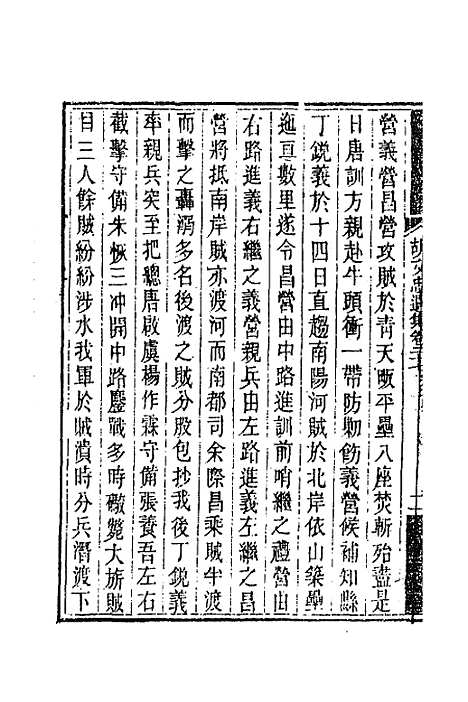 營義營昌營攻賊於青天畈平壘八座焚斬殆盡是
日唐訓方親赴牛頭衝一帶防勦飭義營候補知縣
丁銳義於十四日直趨南陽河賊於北岸依山築壘
迤亘數里遂令昌營由中路進訓前哨繼之禮營由
右路進義右繼之義營親兵由左路進義左繼之昌
營將抵南岸賊亦渡河而南都司余際昌乘賊半渡
而擊之轟溺多名後渡之賊分股包抄我後丁銳義
率親兵突至把總唐啟虞楊作霖守備張養吾左右
截擊守備朱恢三沖開中路鏖戰多時礮斃大旂賊
目三人餘賊紛紛涉水我軍於賊潰時分兵潛渡下
胡文忠遺集卷二十